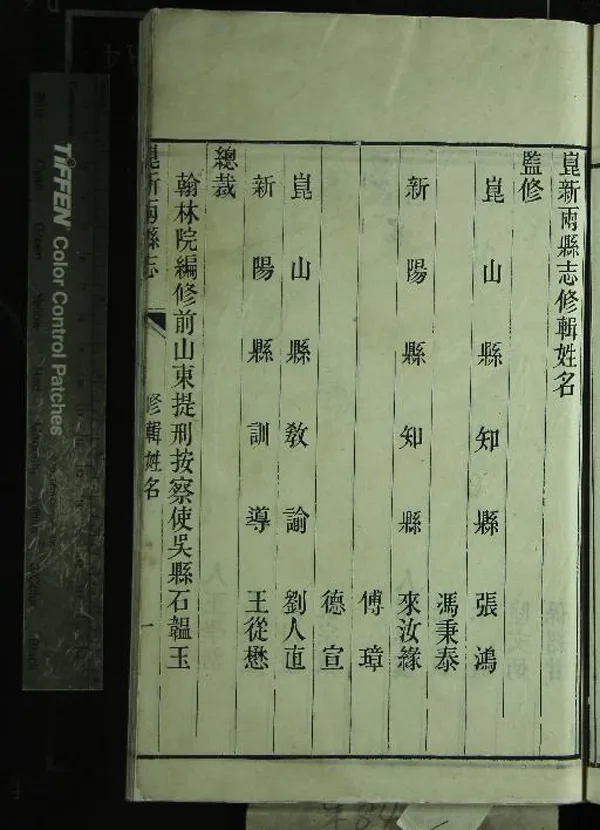 崑新兩縣志修輯姓名
監修
崑山縣知縣張鴻
馮秉泰
新陽縣知縣來汝緣
傅璋
德宣
崑山縣教諭劉人直
新陽縣訓導王從懋
總裁
翰林院編修前山東提刑按察使吳縣石韞玉
崑新兩縣志 修輯姓名 一
TIFFEN Color Control Patches